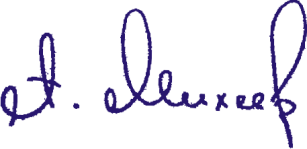 А. Михеев